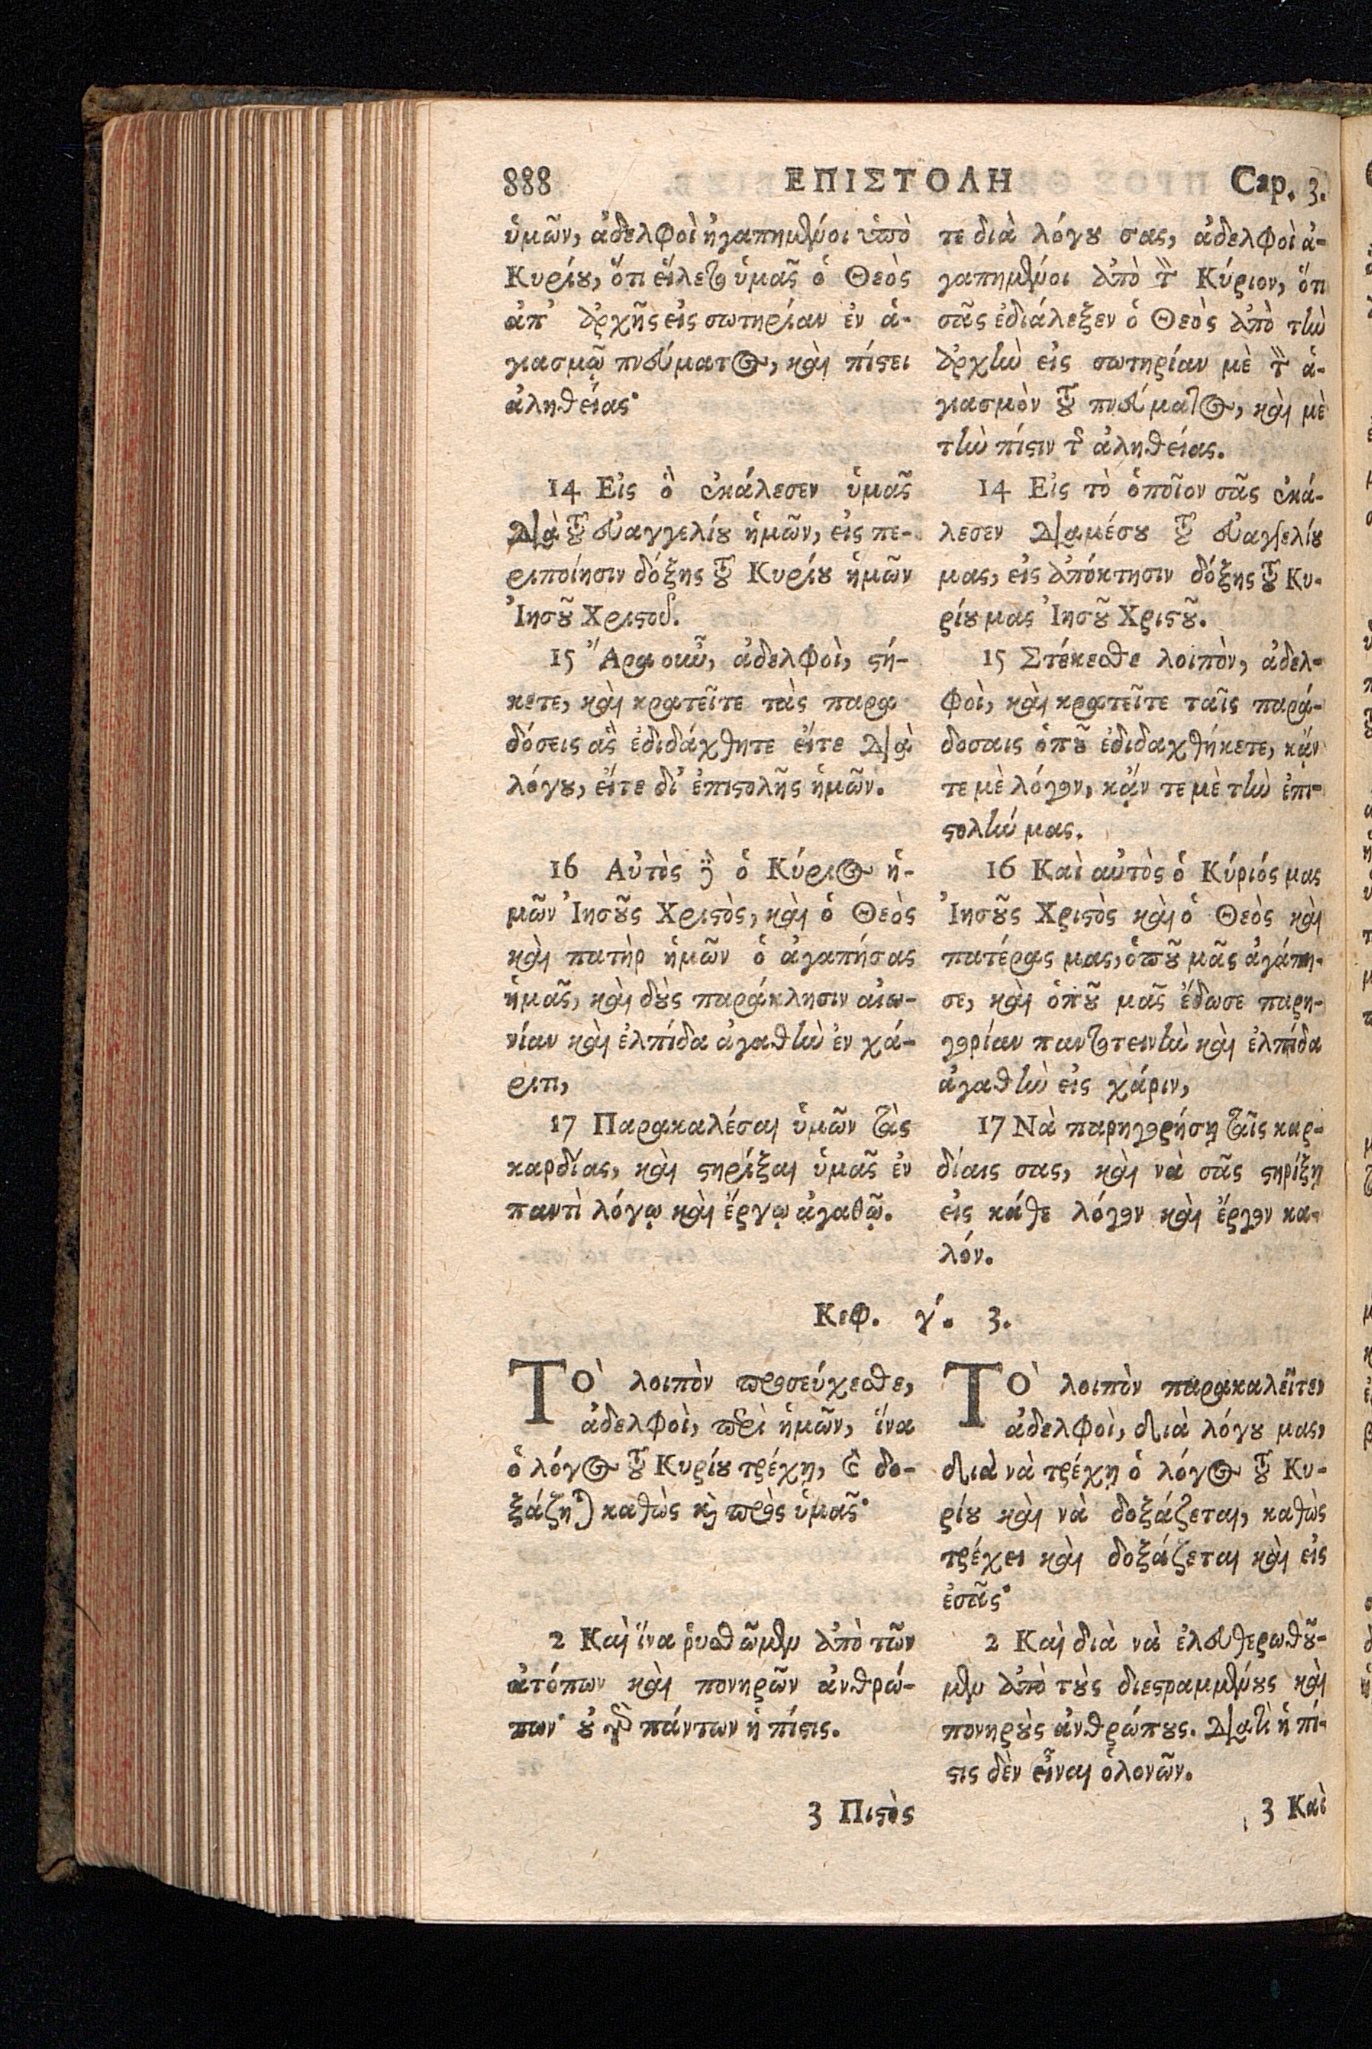 888 ΕΠΙΣΤΟΛΗ Cap. 3.
ὑμῶν, ἀδελφοὶ ἠγαπημένοι ὑπὸ
Κυρίου, ὅτι εἵλετο ὑμᾶς ὁ Θεὸς
ἀπ' ἀρχῆς εἰς σωτηρίαν ἐν ἁ-
γιασμῷ πνεύματος, καὶ πίστει
ἀληθείας·
14 Εἰς ὃ ἐκάλεσεν ὑμᾶς
διὰ τοῦ εὐαγγελίου ἡμῶν, εἰς πε-
ριποίησιν δόξης τοῦ Κυρίου ἡμῶν
Ἰησοῦ Χριστοῦ.
15 Ἄρα οὖν, ἀδελφοὶ, στή-
κετε, καὶ κρατεῖτε τὰς παρα
δόσεις ἃς ἐδιδάχθητε εἴτε διὰ
λόγου, εἴτε δι' ἐπιστολῆς ἡμῶν.
16 Αὐτὸς δὲ ὁ Κύριος ἡ-
μῶν Ἰησοῦς Χριστὸς, καὶ ὁ Θεὸς
καὶ πατὴρ ἡμῶν ὁ ἀγαπήσας
ἡμᾶς, καὶ δοὺς παράκλησιν αἰω-
νίαν καὶ ἐλπίδα ἀγαθὴν ἐν χά-
ριτι,
17 Παρακαλέσαι ὑμῶν τὰς
καρδίας, καὶ στηρίξαι ὑμᾶς ἐν
παντὶ λόγῳ καὶ ἔργῳ ἀγαθῷ.
τε διὰ λόγου σας, ἀδελφοὶ ἀ-
γαπημένοι ἀπὸ τὸν Κύριον, ὅτι
σᾶς ἐδιάλεξεν ὁ Θεὸς ἀπὸ τὴν
ἀρχὴν εἰς σωτηρίαν μὲ τὸν ἁ-
γιασμὸν τοῦ πνεύματος, καὶ μὲ
τὴν πίστιν τῆς ἀληθείας.
14 Εἰς τὸ ὁποῖον σᾶς ἐκά-
λεσεν διαμέσου τοῦ εὐαγγελίου
μας, εἰς ἀπόκτησιν δόξης τοῦ Κυ-
ρίου μας Ἰησοῦ Χριστοῦ.
15 Στέκεσθε λοιπὸν, ἀδελ-
φοὶ, καὶ κρατεῖτε ταῖς παρά-
δοσαις ὁποῦ ἐδιδαχθήκετε, κᾄν
τε μὲ λόγον, κᾄν τε μὲ τὴν ἐπι-
στολήν μας.
16 Καὶ αὐτὸς ὁ Κύριός μας
Ἰησοῦς Χριστὸς καὶ ὁ Θεὸς καὶ
πατέρας μας, ὁποῦ μᾶς ἀγάπη-
σε, καὶ ὁποῦ μᾶς ἔδωσε παρη-
γορίαν παντοτεινὴν καὶ ἐλπίδα
ἀγαθὴν εἰς χάριν,
17 Νὰ παρηγορήσῃ ταῖς καρ-
δίαις σας, καὶ νὰ σᾶς στηρίξῃ
εἰς κάθε λόγον καὶ ἔργον κα-
λόν.
Κεφ. γ'. 3.
ΤῸ λοιπὸν προσεύχεσθε,
ἀδελφοὶ, περὶ ἡμῶν, ἵνα
ὁ λόγος τοῦ Κυρίου τρέχῃ, καὶ δο-
ξάζηται καθὼς καὶ πρὸς ὑμᾶς·
2 Καὶ ἵνα ῥυσθῶμεν ἀπὸ τῶν
ἀτόπων καὶ πονηρῶν ἀνθρώ-
πων· οὐ γὰρ πάντων ἡ πίστις.
3 Πιστὸς
ΤῸ λοιπὸν παρακαλεῖτεν
ἀδελφοὶ, διὰ λόγου μας,
διὰ νὰ τρέχῃ ὁ λόγος τοῦ Κυ-
ρίου καὶ νὰ δοξάζεται, καθὼς
τρέχει καὶ δοξάζεται καὶ εἰς
ἐσᾶς·
2 Καὶ διὰ νὰ ἐλευθερωθοῦ-
μεν ἀπὸ τοὺς διεστραμμένους καὶ
πονηροὺς ἀνθρώπους. Διατὶ ἡ πί-
στις δὲν εἶναι ὁλονῶν.
3 Καὶ